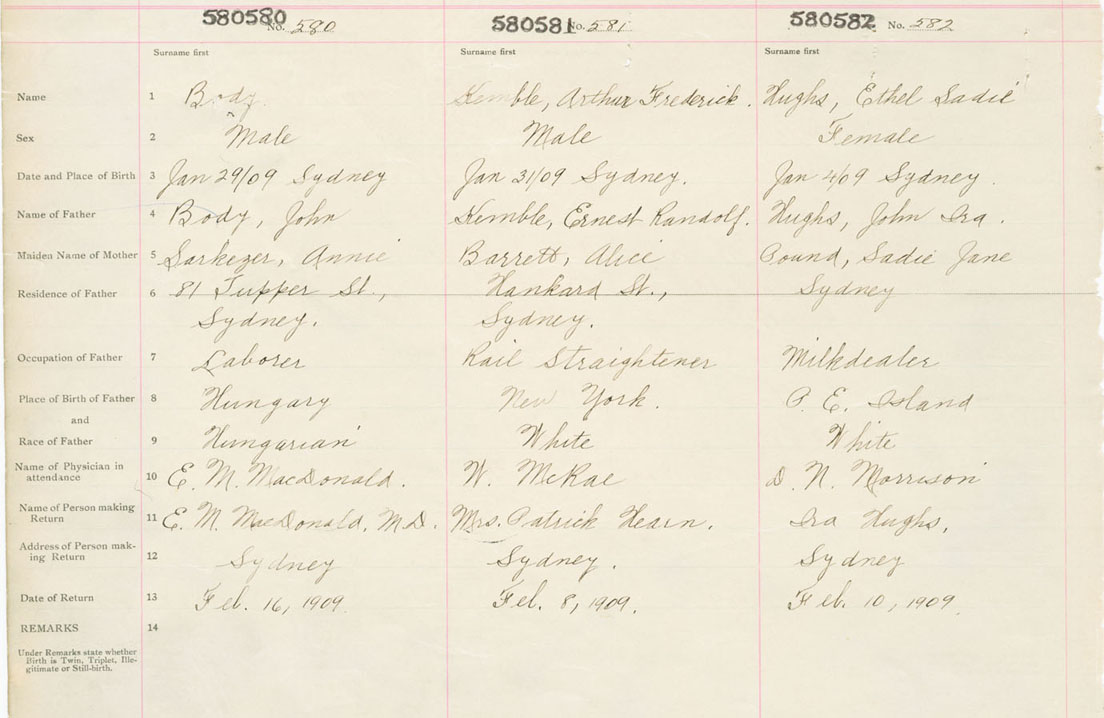 580580 No. 580 580581 No. 581 580582 No. 582
Surname first Surname first Surname first
Name 1 Body Kemble, Arthur Frederick. Hughs, Ethel Sadie
Sex 2 Male Male Female
Date and Place of Birth 3 Jan 29/09 Sydney Jan 31/09 Sydney. Jan 4/09 Sydney.
Name of Father 4 Body, John Kemble, Ernest Randolf. Hughs, John Ira.
Maiden Name of Mother 5 Sarkezer, Annie Barrett, Alice Pound, Sadie Jane
Residence of Father 6 81 Tupper St., Hankard St., Sydney
Sydney. Sydney.
Occupation of Father 7 Laborer Rail Straightener Milkdealer
Place of Birth of Father 8 Hungary New York. P. E. Island
and
Race of Father 9 Hungarian White White
Name of Physician in
attendance 10 E. M. MacDonald. W. McRae D. N. Morrison
Name of Person making
Return 11 E. M. MacDonald, M.D. Mrs. Patrick Hearn. Ira Hughs,
Address of Person mak-
ing Return 12 Sydney Sydney. Sydney
Date of Return 13 Feb. 16, 1909. Feb. 8, 1909. Feb. 10, 1909.
REMARKS 14
Under Remarks state whether
Birth is Twin, Triplet, Ille-
gitimate or Still-birth.